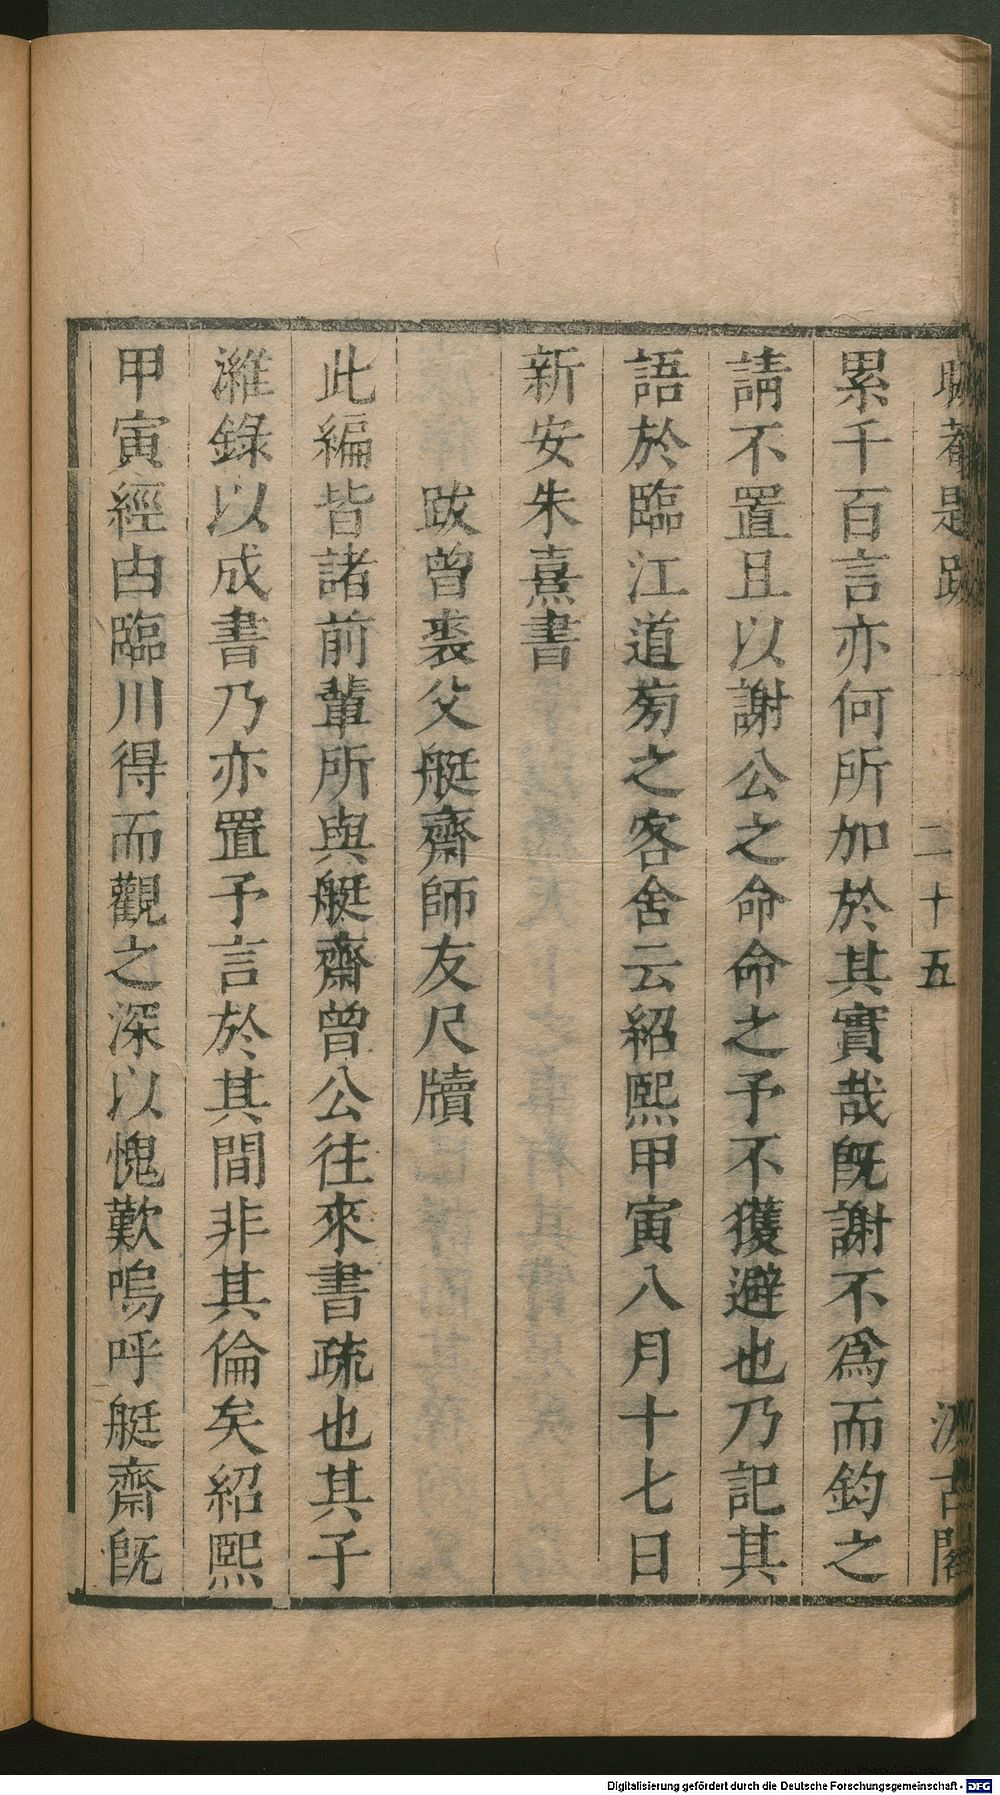 晦菴題跋 二十五 汲古閣
累千百言亦何所加於其實哉旣謝不爲而鈞之
請不置且以謝公之命命之予不獲避也乃記其
語於臨江道旁之客舍云紹熙甲寅八月十七日
新安朱熹書
跋曾裘父艇齋師友尺牘
此編皆諸前輩所與艇齋曾公往來書疏也其子
濰錄以成書乃亦置予言於其間非其倫矣紹熙
甲寅經由臨川得而觀之深以愧歎嗚呼艇齋旣
Digitalisierung gefördert durch die Deutsche Forschungsgemeinschaft - DFG